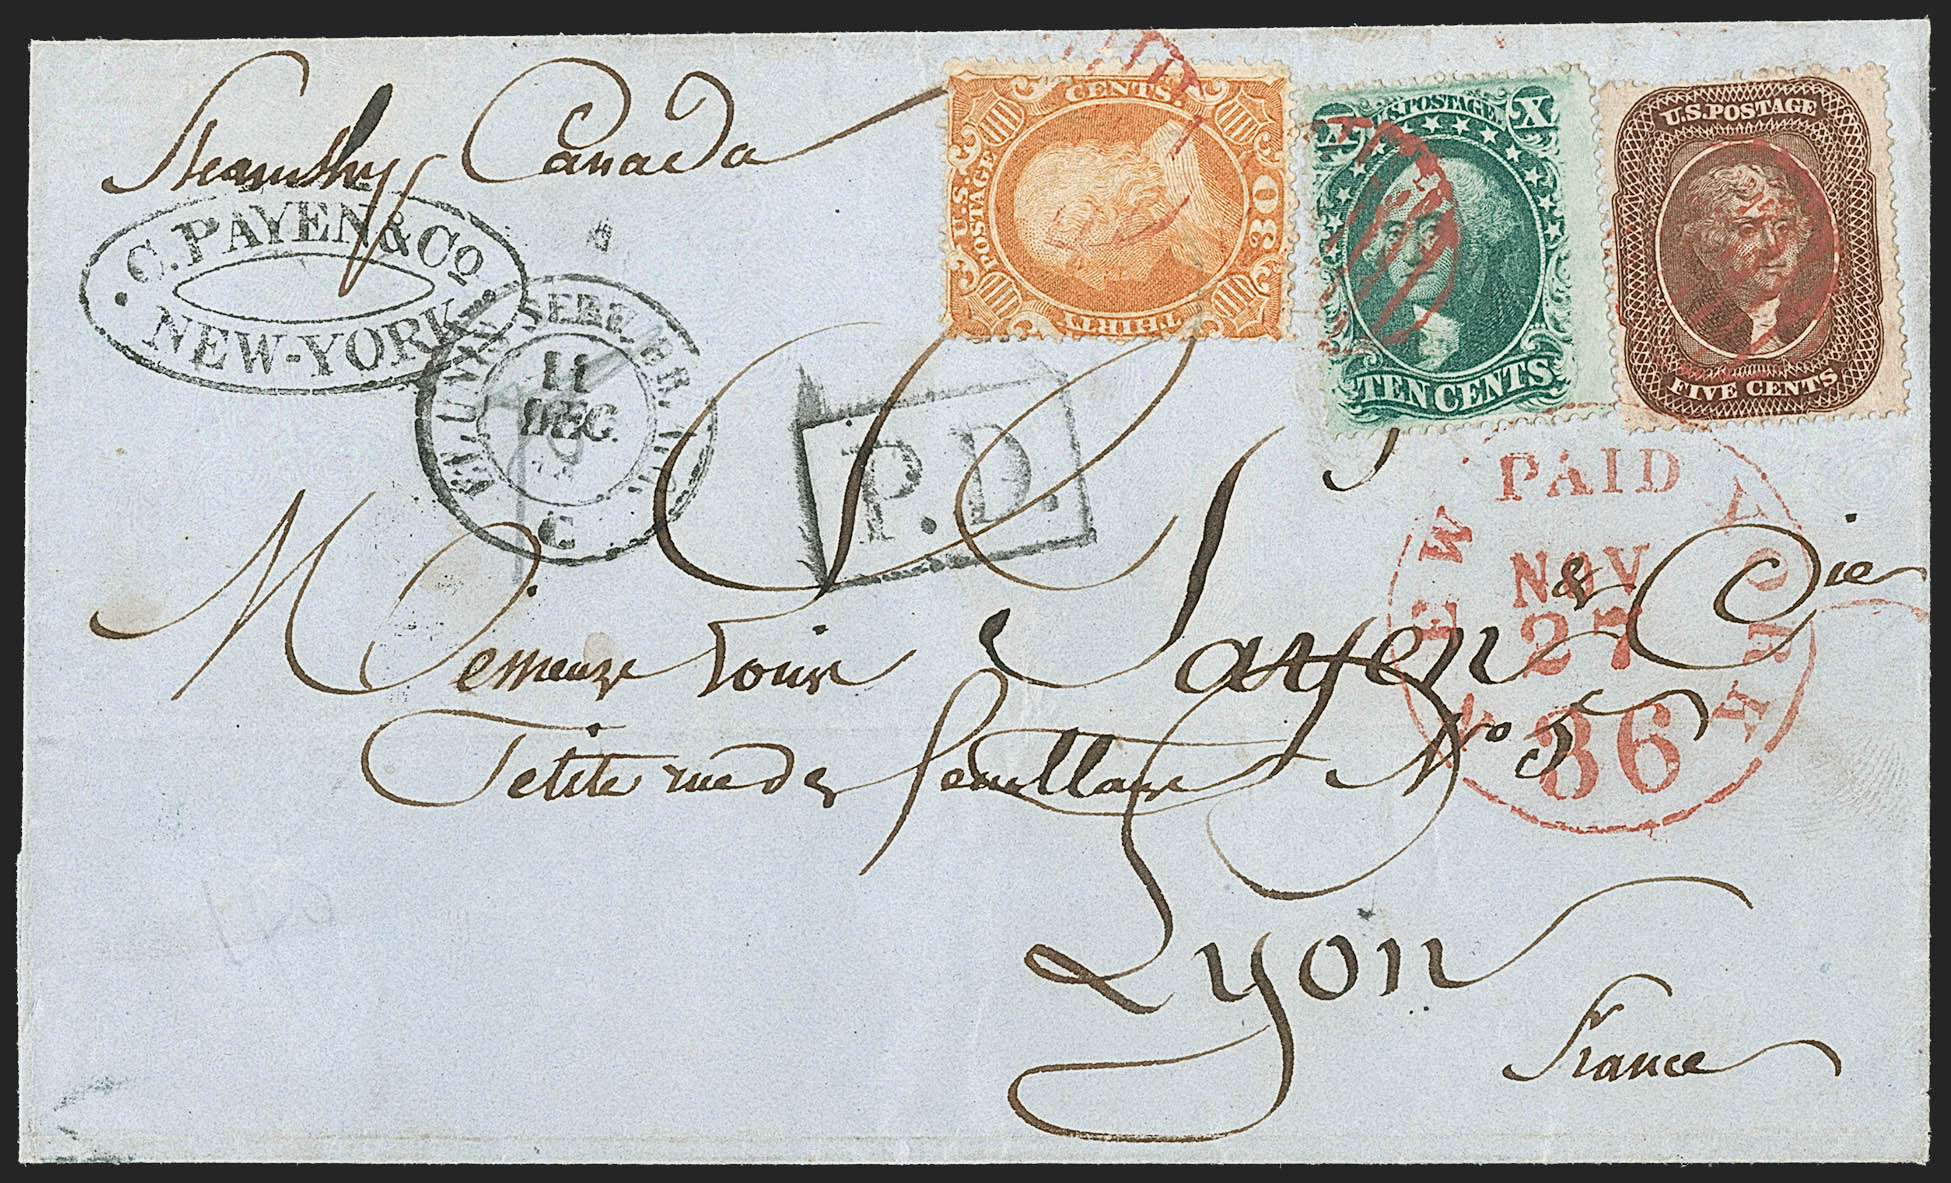 Steamship Canada
C. PAYEN & Co
NEW-YORK
11
DEC.
C
P.D.
U.S. POSTAGE
THIRTY
CENTS.
30
U.S. POSTAGE
X X
TEN CENTS
U.S. POSTAGE
FIVE CENTS
NEW YORK
PAID
NOV
27
36
Messieurs Louis Payen & Cie
Petite rue des feuillans No 5
Lyon
France